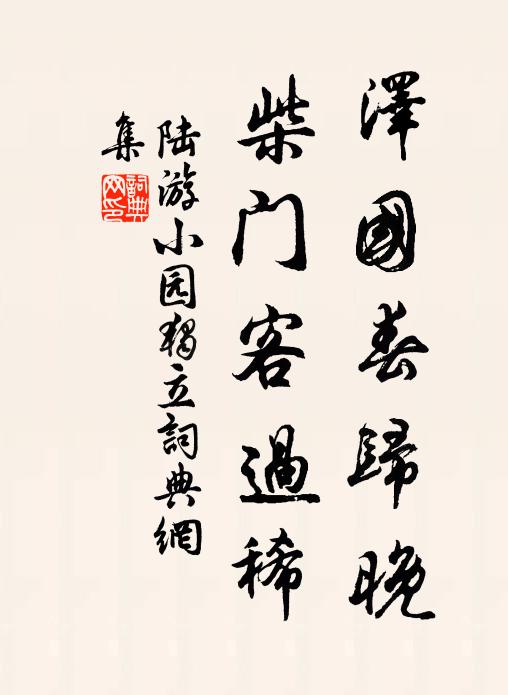 澤國春歸晚
柴门客過稀
陆游小园獨立詞典網
集
詞典
网印